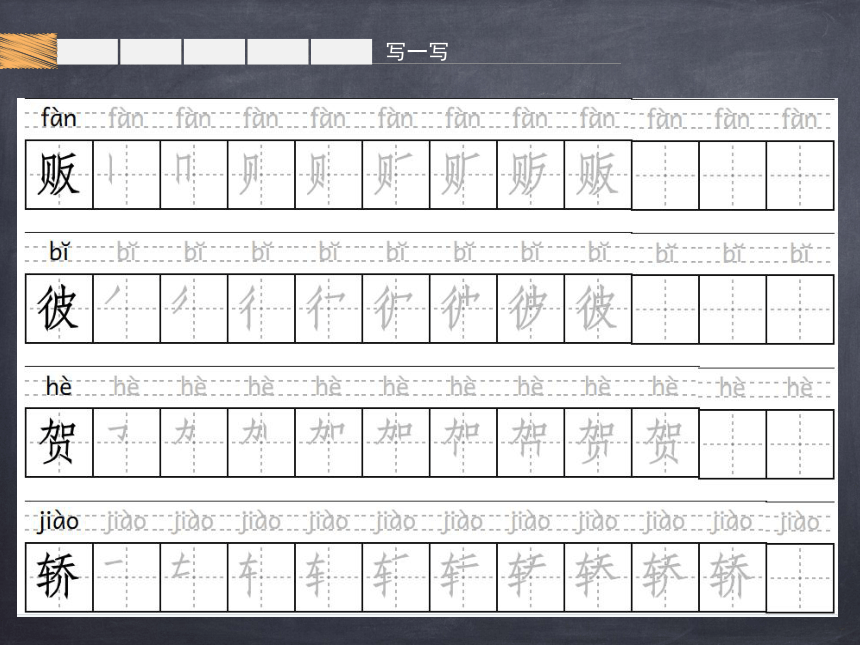 写一写
fàn fàn fàn fàn fàn fàn fàn fàn fàn fàn fàn fàn
贩 贩
bǐ bǐ bǐ bǐ bǐ bǐ bǐ bǐ bǐ bǐ bǐ bǐ
彼 彼
hè hè hè hè hè hè hè hè hè hè hè hè
贺 贺
jiào jiào jiào jiào jiào jiào jiào jiào jiào jiào jiào jiào
轿 轿